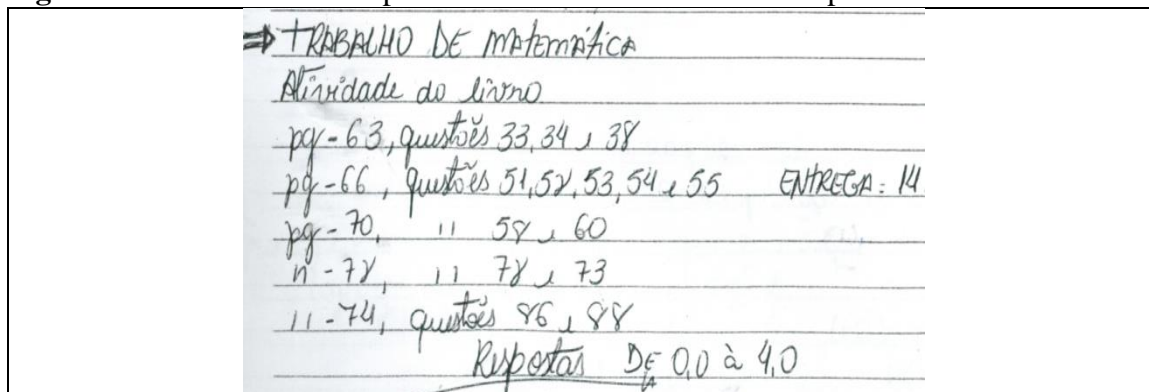 ⇒ TRABALHO DE MATEMÁTICA
Atividade do livro
pg-63, questões 33, 34 e 38
pg-66, questões 51, 52, 53, 54 e 55 ENTREGA: 14
pg-70, " 58 e 60
" -72, " 72 e 73
" -74, questões 86 e 88
Respostas DE 0,0 à 4,0